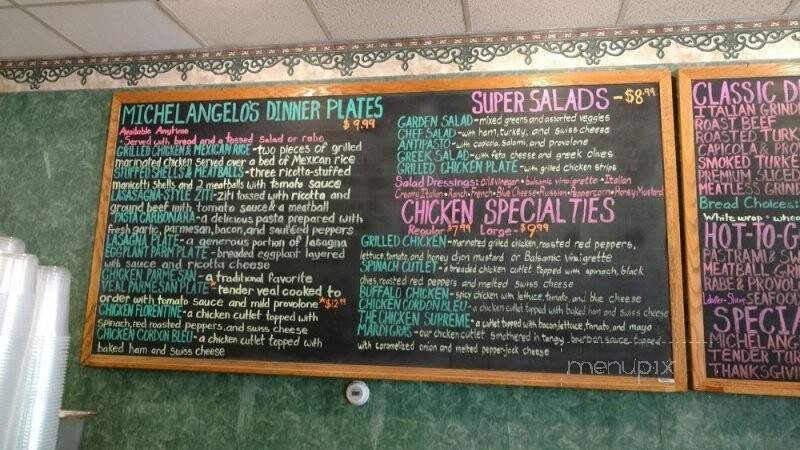 MICHELANGELO'S DINNER PLATES
$9.99
Available Anytime
• Served with bread and a tossed salad or rabe
GRILLED CHICKEN & MEXICAN RICE - two pieces of grilled
marinated chicken served over a bed of Mexican rice
STUFFED SHELLS & MEATBALLS - three ricotta-stuffed
manicotti shells and 2 meatballs with tomato sauce
LASAGNA-STYLE ZITI - ziti tossed with ricotta and
ground beef with tomato sauce & a meatball
PASTA CARBONARA - a delicious pasta prepared with
fresh garlic, parmesan, bacon, and sautéed peppers
LASAGNA PLATE - a generous portion of lasagna
EGGPLANT PARM PLATE - breaded eggplant layered
with sauce and ricotta cheese
CHICKEN PARMESAN - a traditional favorite
VEAL PARMESAN PLATE - *tender veal cooked to
order with tomato sauce and mild provolone *$12.99
CHICKEN FLORENTINE - a chicken cutlet topped with
spinach, red roasted peppers, and swiss cheese
CHICKEN CORDON BLEU - a chicken cutlet topped with
baked ham and swiss cheese
SUPER SALADS - $8.99
GARDEN SALAD - mixed greens and assorted veggies
CHEF SALAD - with ham, turkey, and swiss cheese
ANTIPASTO - with capicola, salami, and provolone
GREEK SALAD - with feta cheese and greek olives
GRILLED CHICKEN PLATE - with grilled chicken strips
Salad Dressings: Oil & Vinegar • balsamic vinaigrette • Italian
Creamy Italian • Ranch • French • Blue Cheese • Russian • Peppercorn • Honey Mustard
CHICKEN SPECIALTIES
Regular $7.99 Large - $9.99
GRILLED CHICKEN - marinated grilled chicken, roasted red peppers,
lettuce, tomato, and honey dijon mustard or Balsamic Vinaigrette
SPINACH CUTLET - a breaded chicken cutlet topped with spinach, black
olives, roasted red peppers and melted swiss cheese
BUFFALO CHICKEN - spicy chicken with lettuce, tomato, and blue cheese
CHICKEN CORDON BLEU - a chicken cutlet topped with baked ham and swiss cheese
THE CHICKEN SUPREME - a cutlet topped with bacon, lettuce, tomato, and mayo
MARDI GRAS - our chicken cutlet smothered in tangy bourbon sauce topped
with caramelized onion and melted pepper-jack cheese
menupix
CLASSIC
ITALIAN GRIND
ROAST BEEF
ROASTED TURK
CAPICOLA & PRO
SMOKED TURKE
PREMIUM SLICED
MEATLESS GRIN
Bread Choices:
White wrap • whea
HOT-TO-G
PASTRAMI & SW
MEATBALL GRIN
RABE & PROVOL
SEAFOOD
SPECIA
MICHELANG
TENDER TUR
THANKSGIVI